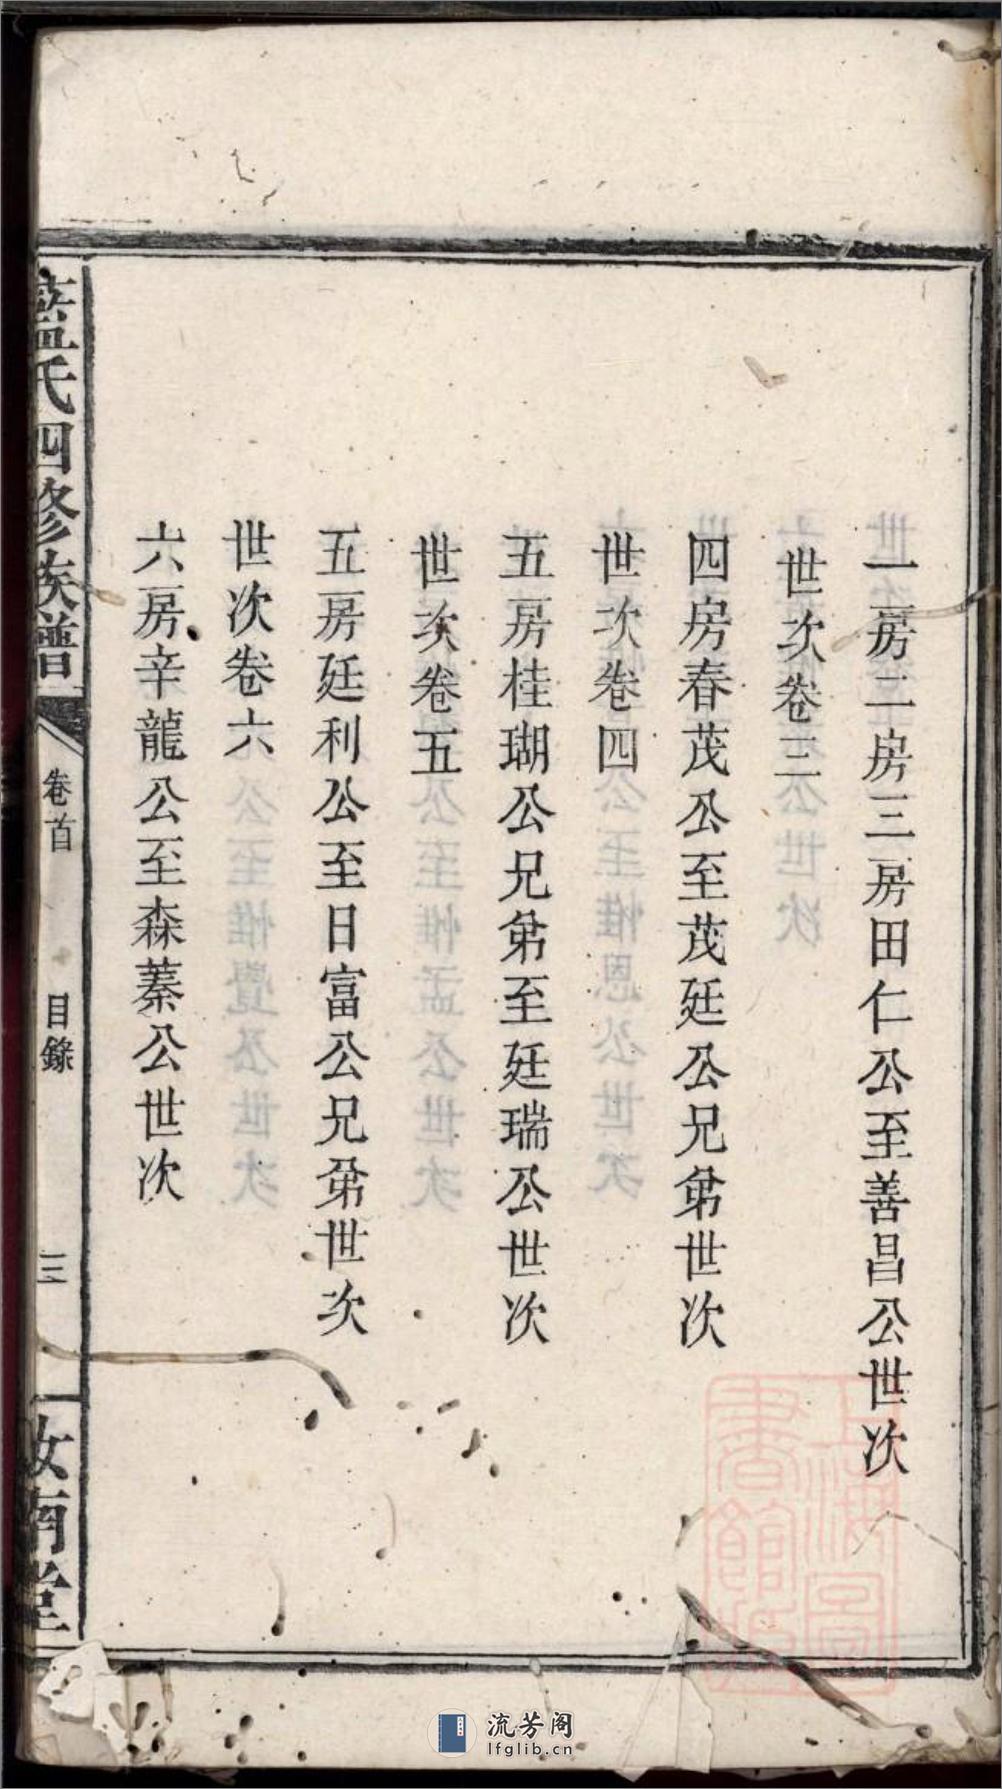 一房二房三房田仁公至善昌公世次
世次卷三
四房春茂公至茂廷公兄弟世次
世次卷四
五房桂瑚公兄弟至廷瑞公世次
世次卷五
五房廷利公至日富公兄弟世次
世次卷六
六房辛龍公至森蓁公世次
藍氏四修族譜
卷首
目錄
三
汝南堂
上海圖書館藏
流芳阁
lfglib.cn